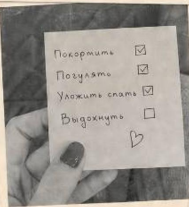 Покормить
Погулять
Уложить спать
Выдохнуть